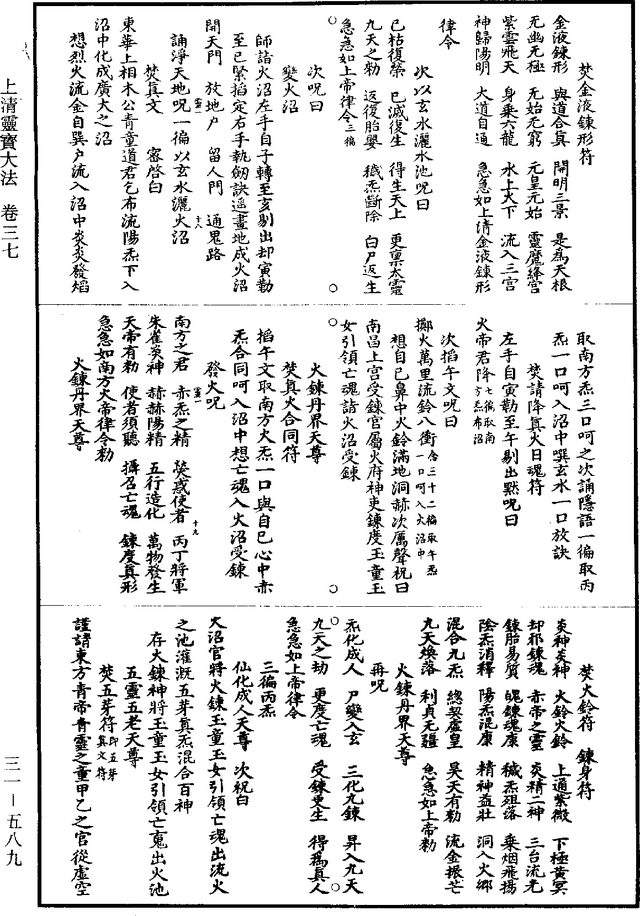 焚金液鍊形符
金液鍊形　與道合真　開明三景　是為天根
无幽无極　无始无窮　元皇元始　靈魔絳宮
紫雲飛天　身乘六龍　水上火下　流入三宮
神歸陽明　大道自通　急急如上清金液鍊形
律令
次以玄水灑水池呪曰
已枯復榮　已滅復生　得生天上　更稟太靈
九天之勑　返復胎嬰　穢炁斷除　白尸返生
急急如上帝律令三徧
次呪曰
變火沼
師詣火沼左手自子轉至玄剔出却寅勒
至巳緊掐定右手執劒訣遥畫地成火沼
開天門　放地戶　留人門　通鬼路
誦淨天地呪一徧以玄水灑火沼
焚真文　密啓曰
東華上相木公青童道君乞布流陽炁下入
沼中化成廣大之沼
想烈火流金自巽戶流入沼中炎炎發焰
取南方炁三口呵之次誦隱語一徧取丙
炁一口呵入沼中噀玄水一口放訣
焚請降真火日魂符
左手自寅勒至午剔出黙呪曰
火帝君降七徧取南方炁布沼
次掐午文呪曰
擲火萬里流鈴八衝念三十二徧取午炁一口呵入火沼中
想自己鼻中火鈴滿地洞赫次厲聲祝曰
南昌上宮受鍊官屬火府神吏鍊度玉童玉
女引領亡魂詣火沼受鍊
火鍊丹界天尊
焚真火合同符
掐午文取南方火炁一口與自己心中赤
炁合同呵入沼中想亡魂入火沼受鍊
發火呪
南方之君　赤炁之精　熒惑使者　丙丁將軍
朱雀炎神　赫赫陽精　五行造化　萬物發生
天帝有勑　使者須聽　攝召亡魂　鍊度真形
急急如南方火帝律令勑
火鍊丹界天尊
焚火鈴符　鍊身符
炎神炎神　火鈴火鈴　上通紫微　下極黃冥
却邪鍊魂　赤帝之靈　炎精二神　三台流光
鍊胎易質　魄鍊魂康　穢炁殂落　乗烟飛揚
陰炁消釋　陽炁混康　精神益壯　洞入火鄉
混合九炁　總契虛皇　昊天有勑　流金振芒
九天煥落　利貞无疆　急急如上帝勑
火鍊丹界天尊
再呪
炁化成人　尸變入玄　三化九鍊　昇入九天
九天之劫　更度亡魂　受鍊更生　得為真人
急急如上帝律令
三徧丙炁
仙化成人天尊　次祝曰
火沼官將火鍊玉童玉女引領亡魂出流火
之池灌溉五芽真炁混合百神
存火鍊神將玉童玉女引領亡魂出火池
五靈五老天尊
焚五芽符即五芽真文符
謹請東方青帝青靈之童甲乙之宮從虛空
上清靈寶大法　卷三七
三一—五八九